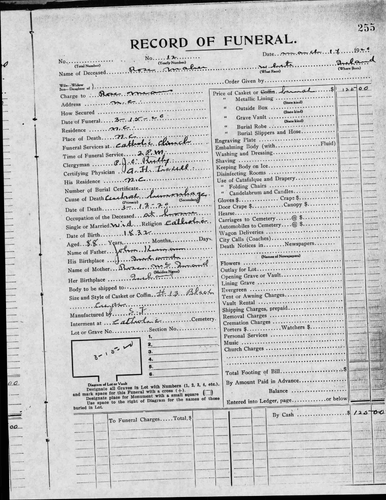 255
RECORD OF FUNERAL.
No. No. 12 Date March 1920
(Total Number) (Yearly Number)
Name of Deceased Rose White Ireland
(What Race) (Where Born)
Wife - Widow
Son - Daughter of Order Given by
Charge to Rose
Address N.C.
How Secured
Date of Funeral 3-15-20
Residence N.C.
Place of Death N.C.
Funeral Services at Catholic Church
Time of Funeral Service 2 P.M.
Clergyman
Certifying Physician A. H.
His Residence N.C.
Number of Burial Certificate
Cause of Death Cerebral hemorrhage
(Contributory) (Covering)
Date of Death 3-12-20
Occupation of the Deceased at home
Single or Married Wid. Religion Catholic
Date of Birth 1832
Aged 88 Years Months Days
Name of Father John
His Birthplace Ireland
Name of Mother Rose
(Maiden Name)
Her Birthplace
Body to be shipped to
Size and Style of Casket or Coffin #12 Black
Manufactured by
Interment at Catholic Cemetery
Lot or Grave No. Section No.
3-15-20
No. 1
No. 2
No. 3
No. 4
No. 5
No. 6
No. 7
No. 8
Diagram of Lot or Vault
Designate all Graves in Lot with Numbers (1, 2, 3, 4, etc.) and mark space for this Funeral with a cross (+).
Designate place for Monument with a small square (□)
Use space to right of Diagram for the names of those Buried in Lot.
To Funeral Charges Total, $
Price of Casket or Coffin burial $ 125 00
" Metallic Lining
(State Kind)
" Outside Box
(State Kind)
" Grave Vault
(State Kind)
" Burial Robe
(State Kind)
" Burial Slippers and Hose
Engraving Plate
Embalming Body (with Fluid)
Washing and Dressing
Shaving
Keeping Body on Ice
Disinfecting Rooms
Use of Catafalque and Drapery
" Folding Chairs
" Candelabrum and Candles
Gloves $ Crape $
Door Crape $ Canopy $
Hearse
Carriages to Cemetery @ $
Automobiles to Cemetery @ $
Wagon Deliveries @ $
City Calls (Coaches) @ $
Death Notices in Newspapers
(Names of Newspapers)
Flowers
Outlay for Lot
Opening Grave or Vault
Lining Grave
Evergreen
Tent or Awning Charges
Vault Rental
Shipping Charges, prepaid
Removal Charges
Cremation Charges
Porters $ Watchers $
Personal Services
Music
Church Charges
Total Footing of Bill $
By Amount Paid in Advance
Balance
Entered into Ledger, page or below
By Cash $ 125 00